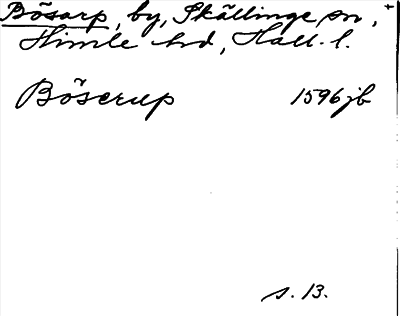 Bösarp, by, Skällinge sn,
Himle hd, Hall. l.
Böserup 1596 jb
s. 13.